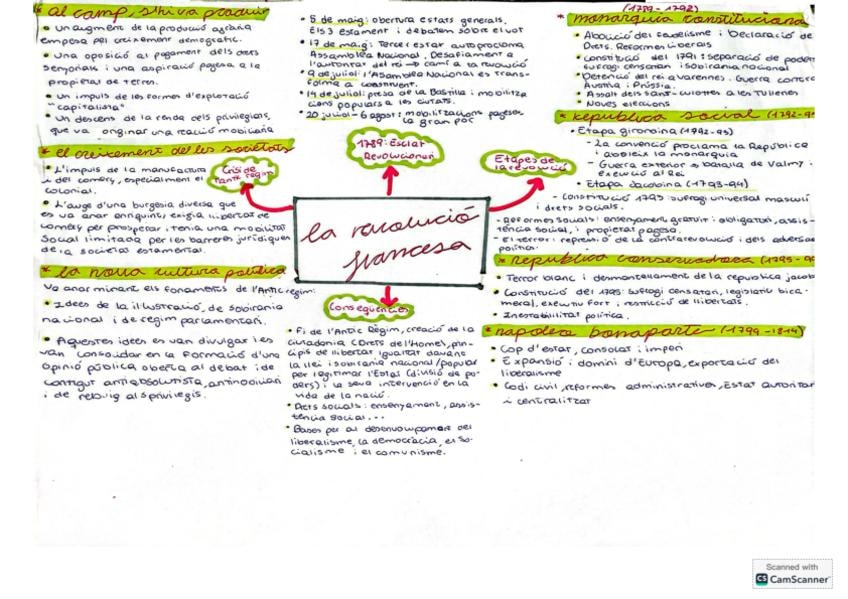 * al camp, s'hi va produir
• un augment de la producció agrària
empesa pel creixement demogràfic.
• una oposició al pagament dels drets
senyorials i una aspiració pagesa a la
propietat de terres.
• un impuls de les formes d'explotació
"capitalista".
• un descens de la renda dels privilegiats,
que va originar una reacció
* el creixement de les societats
• L'impuls de la manufactura
i del comerç, especialment el
colonial.
• L'auge d'una burgesia diversa que
es va anar enriquint, exigia llibertat de
comerç per prosperar i tenia una mobilitat
social limitada per les barreres jurídiques
de la societat estamental.
* la nova cultura política
va anar minant els fonaments de l'Antic règim:
• Idees de la il·lustració, de sobirania
nacional i de règim parlamentari.
• Aquestes idees es van divulgar i es
van consolidar en la formació d'una
opinió pública oberta al debat i de
contingut antiabsolutista, antinobiliari
i de rebuig als privilegis.
Crisi de
l'antic règim
• 5 de maig: obertura estats generals.
Els 3 estament i debaten sobre el vot
• 17 de maig: Tercer estat autoproclama
Assemblea Nacional, Desafiament a
l'autoritat del rei → camí a la revolució
• 9 de juliol: l'Assamblea Nacional es trans-
forma a constituent.
• 14 de juliol: presa de la Bastilla i mobilitza
cions populars a les ciutats.
• 20 juliol - 6 agost: mobilitzacions pageses
la gran por
1789: Esclat
Revolucionari
la revolució
francesa
Conseqüències
• Fi de l'Antic Règim, creació de la
ciutadania (Drets de l'Home), prin-
cipis de llibertat igualtat davant
la llei i sobirania nacional/popular
per legitimar l'Estat (divisió de po-
ders) i la seva intervenció en la
vida de la nació.
• Drets socials: ensenyament, assis-
tència social...
• Bases per al desenvolupament del
liberalisme, la democràcia, el so-
cialisme i el comunisme.
Etapes de
la revolució
(1789-1792)
* monarquia constitucional
• Abolició del feudalisme i Declaració de
Drets. Reformes liberals
• constitució del 1791: separació de poder
sufragi censatari i sobirania nacional
• Detenció del rei a Varennes. Guerra contra
Àustria i Prússia.
• Assalt dels sant-culottes a les Tulleries
• Noves eleccions
* República social (1792-9
• Etapa girondina (1792-93)
- La convenció proclama la República
i aboleix la monarquia
- Guerra exterior → batalla de Valmy i
execució al Rei
• Etapa Jacobina (1793-94)
- Constitució 1793: sufragi universal masculí
i drets socials.
- Reformes socials: ensenyament gratuït i obligatori, assis-
tència social, i propietat pagesa.
- El terror: repressió de la contrarevolució i dels adversa
política.
* república conservadora (1795-9
• Terror blanc i desmantellament de la república jacob
• Constitució del 1795: sufragi censatari, legislatiu bica-
meral, executiu fort i restricció de llibertats.
• Inestabilitat política.
* napoleó bonaparte (1799-1814)
• Cop d'estat, consolat i imperi
• Expansió i domini d'Europa, exportació del
liberalisme
• Codi civil, reformes administratives, Estat autoritar
i centralitzat
Scanned with
CS CamScanner